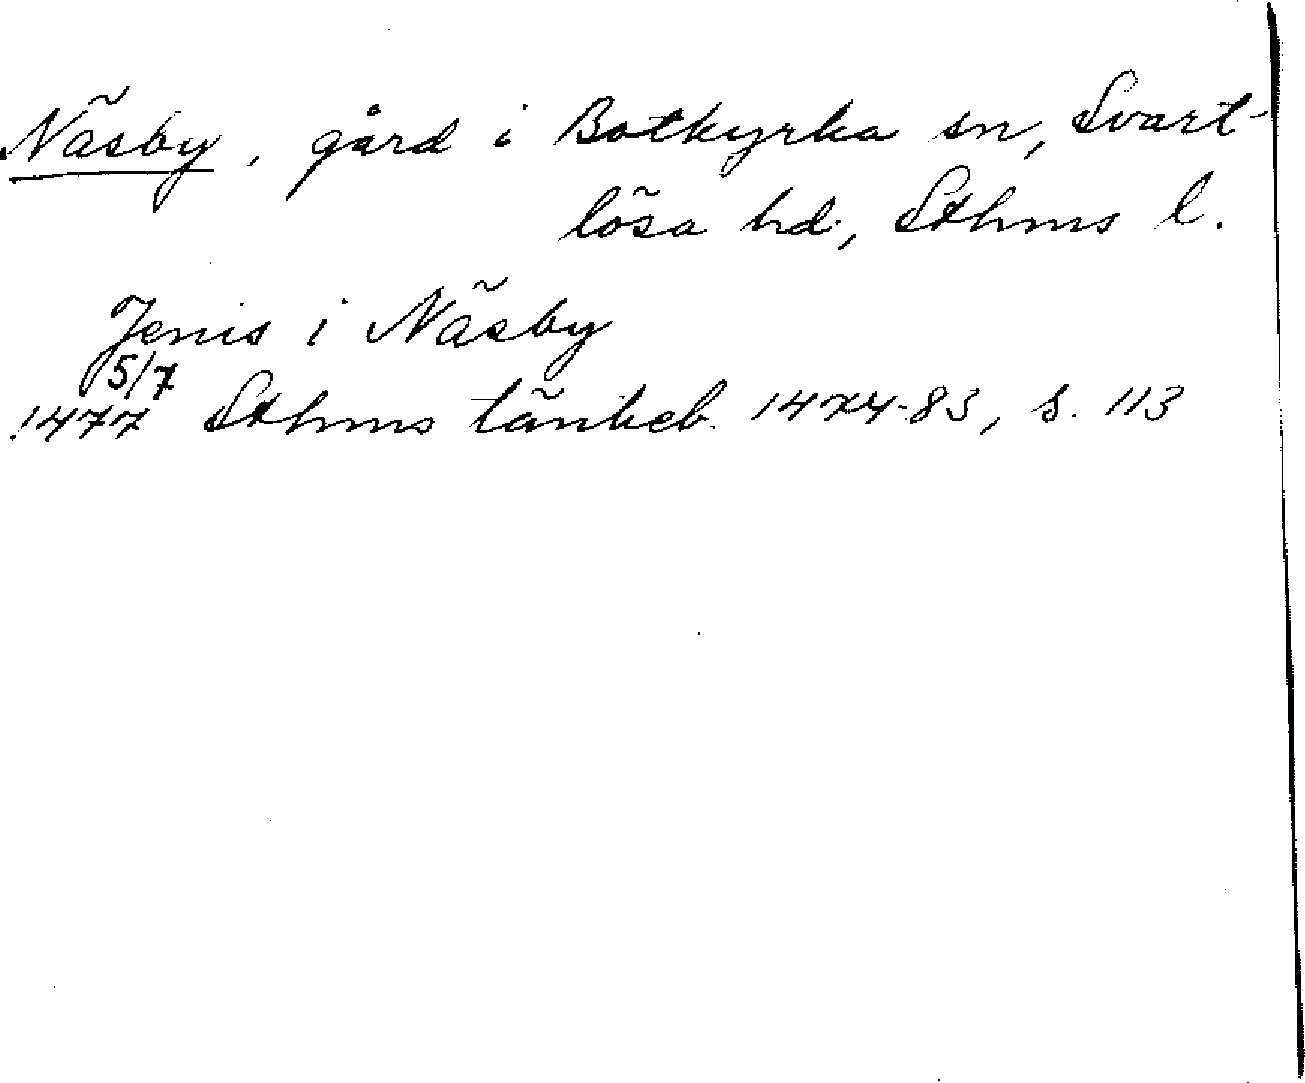 Näsby, gård i Botkyrka sn, Svart-
lösa hd., Sthms l.
Jenis i Näsby
5/7
1477 Sthms tänkeb. 1474-83, s. 113